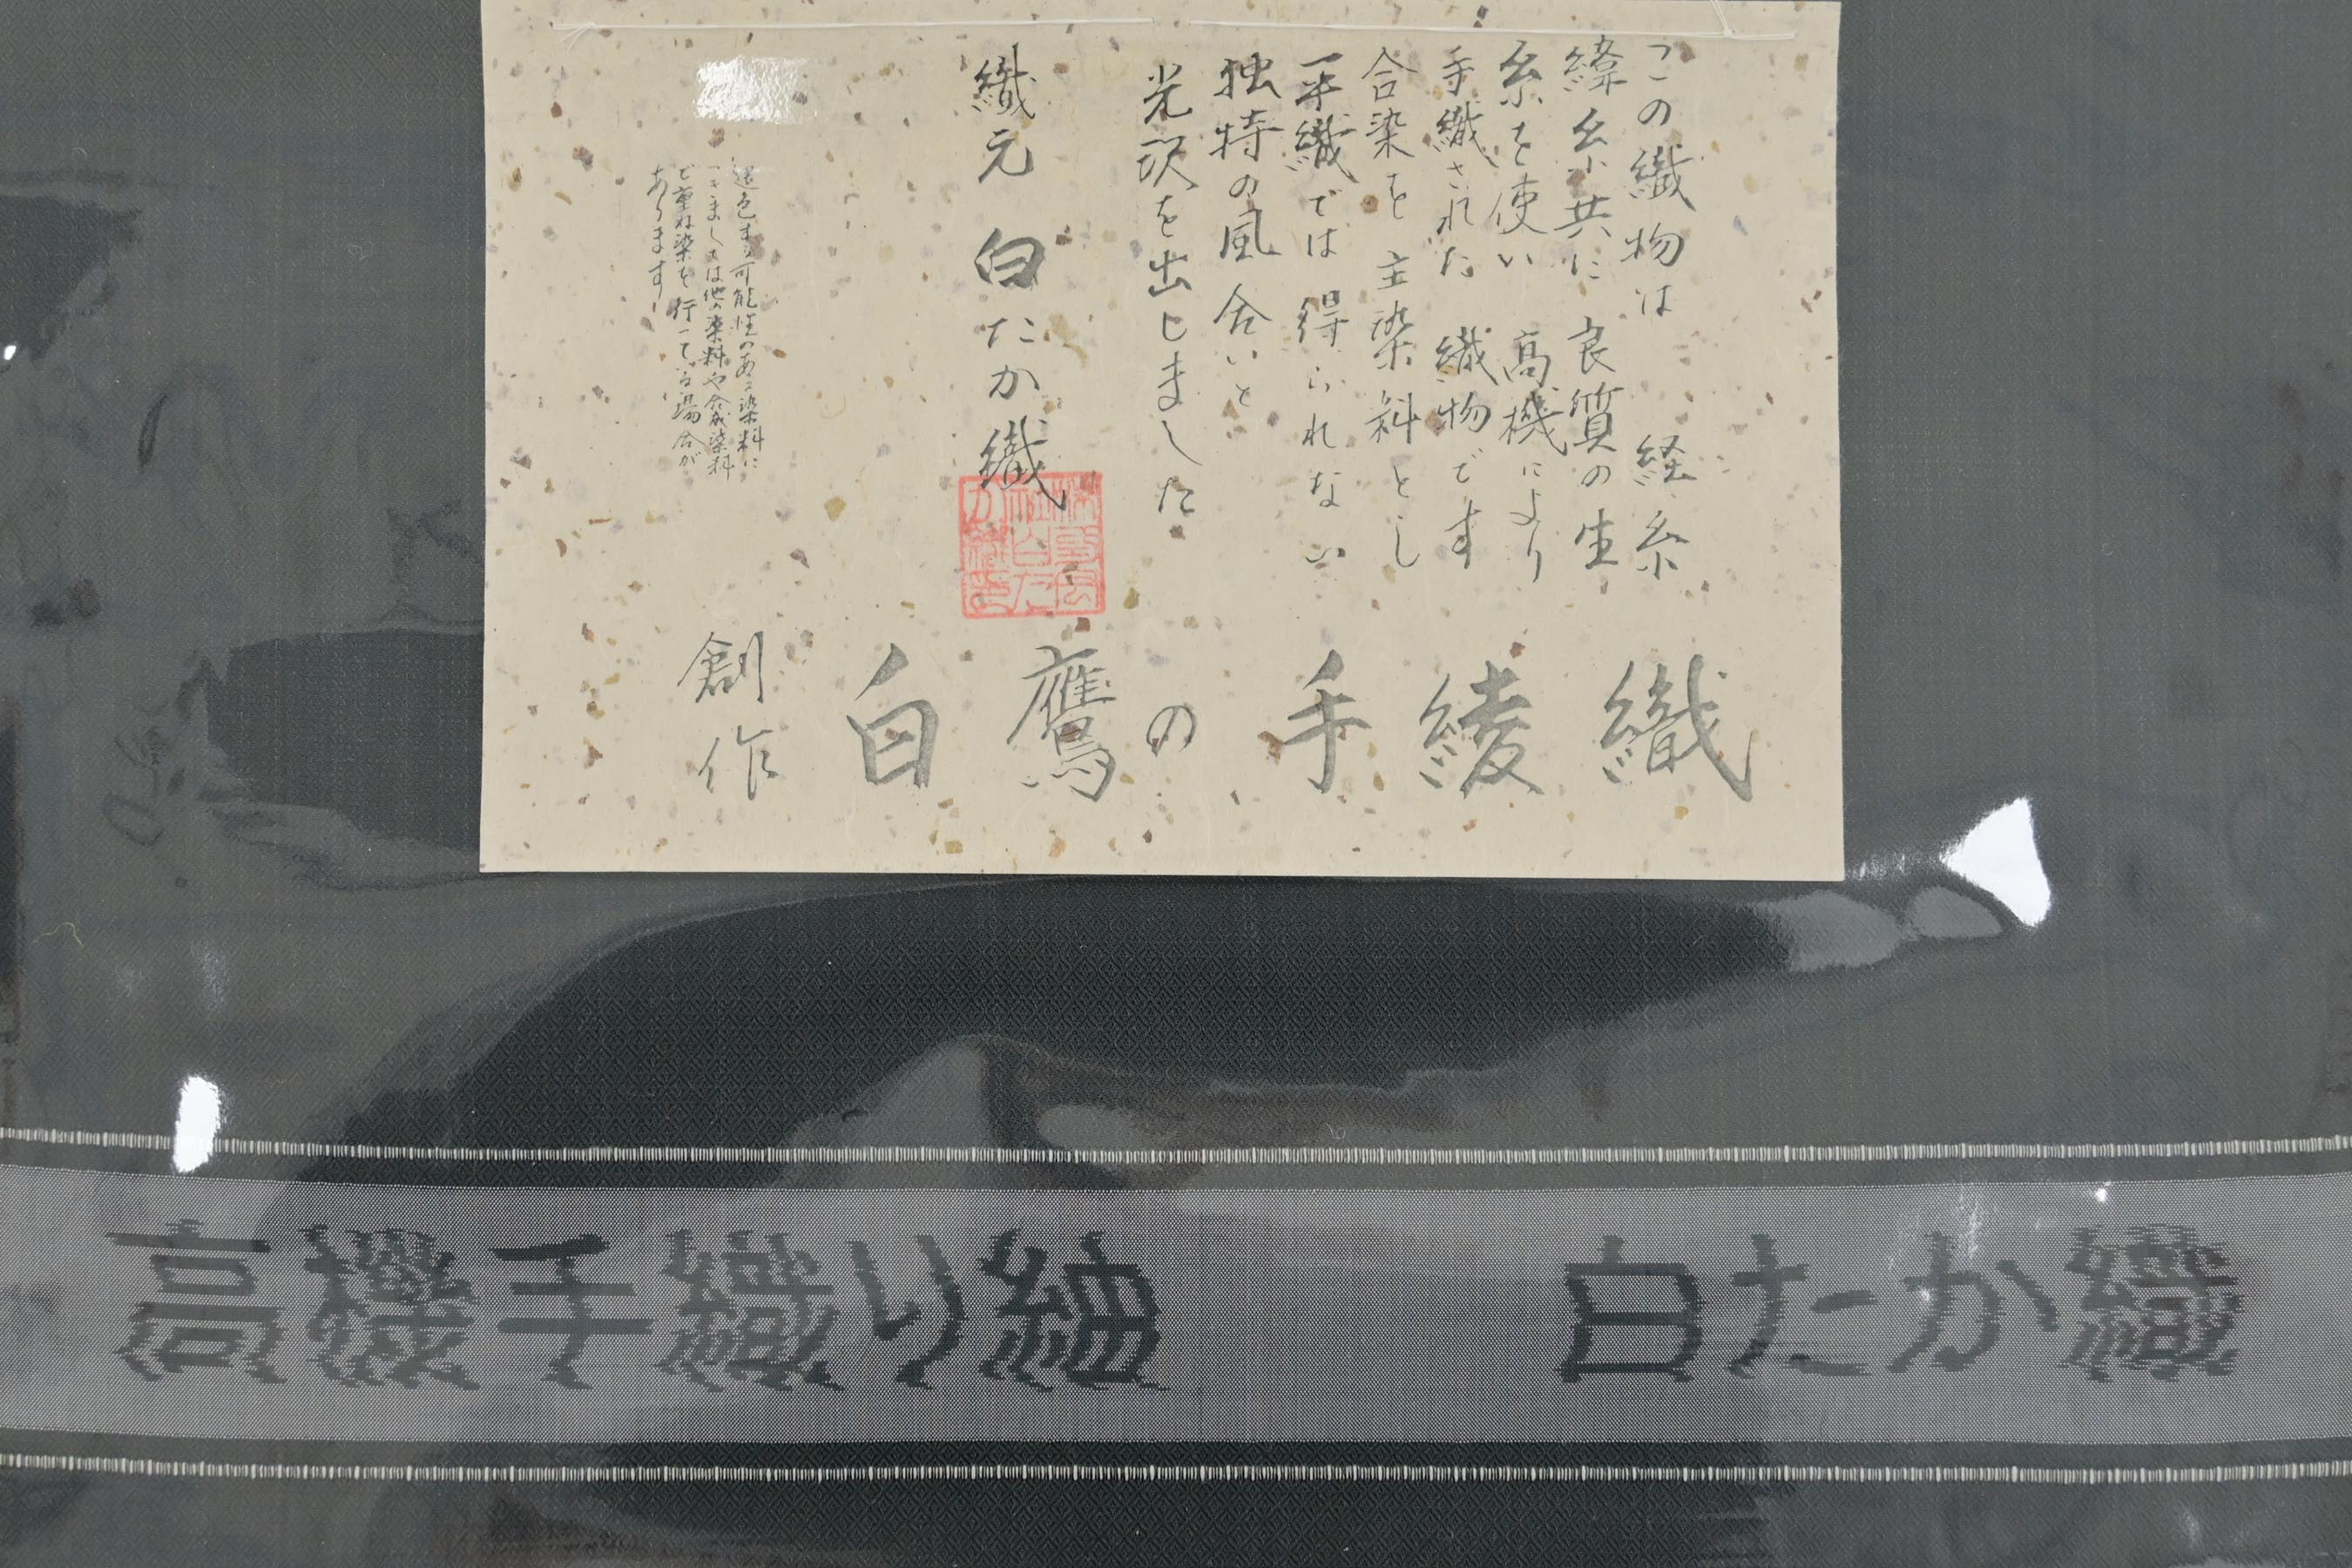 この織物は 経糸
緯糸共に 良質の生
糸を使い 高機により
手織された 織物です
合染を 主染料とし
平織では得られない
独特の風合いと
光沢を出しました
織元 白たか織
退色する可能性のある染料に
つきましては他の染料や合成染料
で重ね染を行っている場合が
あります
創作
白鷹の手綾織
高機手織り紬 白たか織